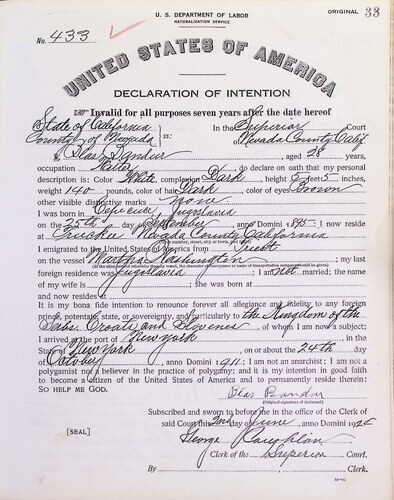 U. S. DEPARTMENT OF LABOR
NATURALIZATION SERVICE
ORIGINAL 33
No. 433
UNITED STATES OF AMERICA
DECLARATION OF INTENTION
Invalid for all purposes seven years after the date hereof
State of California In the Superior Court
County of Nevada ss: of Nevada County Calif
I, Blas Bandur, aged 28 years,
occupation, do declare on oath that my personal
description is: Color White, complexion Dark, height 5 feet 5 inches,
weight 140 pounds, color of hair Dark, color of eyes Brown
other visible distinctive marks none
I was born in Jugoslavia
on the 25th day of September, anno Domini 1895; I now reside
at Nevada County California
I emigrated to the United States of America from Triest
on the vessel Martha Washington; my last
foreign residence was Jugoslavia; I am not married; the name
of my wife is; she was born at
and now resides at
It is my bona fide intention to renounce forever all allegiance and fidelity to any foreign
prince, potentate, state, or sovereignty, and particularly to the Kingdom of the
Serbs Croats and Slovenes, of whom I am now a subject;
I arrived at the port of New york, in the
State of New York, on or about the 24th day
of October, anno Domini 1911; I am not an anarchist; I am not a
polygamist nor a believer in the practice of polygamy; and it is my intention in good faith
to become a citizen of the United States of America and to permanently reside therein:
SO HELP ME GOD.
Blas Bandur
(Original signature of declarant)
Subscribed and sworn to before me in the office of the Clerk of
[SEAL] said Court this 2nd day of June, anno Domini 192
George
Clerk of the Superior Court.
By, Clerk.